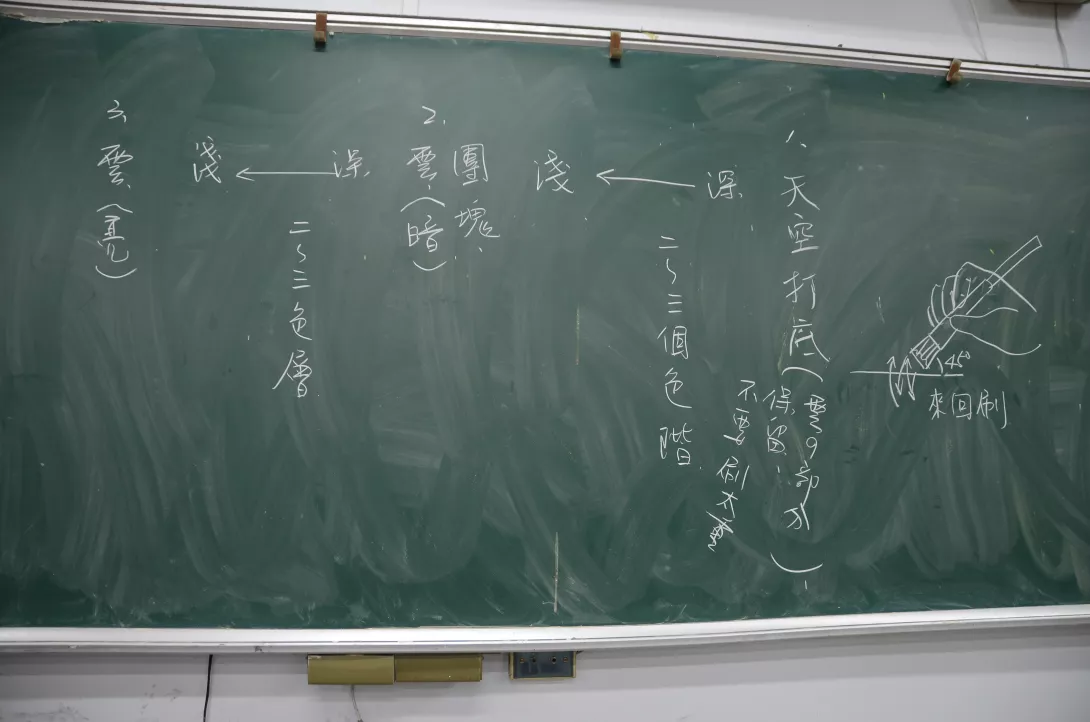 1、天空打底(雲的部分
保留、
不要刷
)
深
淺
二~三個色階
2、團塊、
雲、(暗)
深
淺
二~三色層
三、雲、(亮)
45°
來回刷